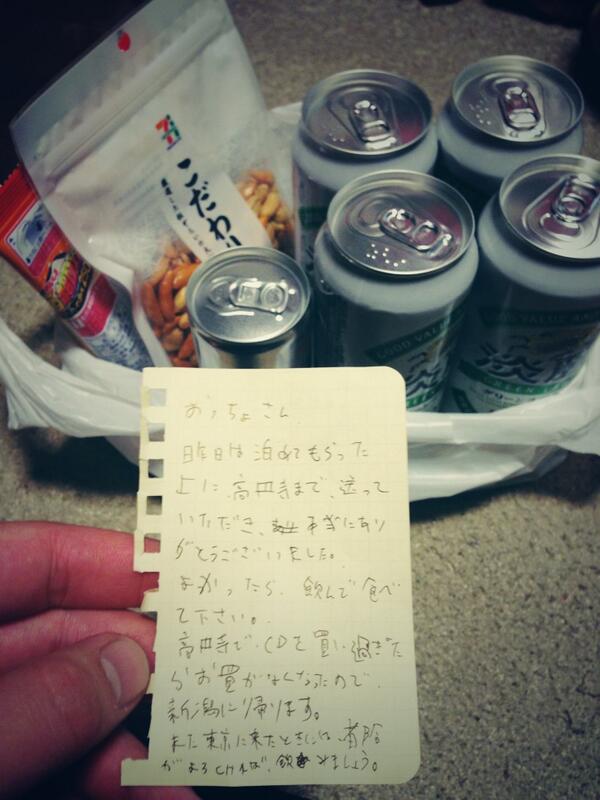 こだわり
GOOD VALUE
淡麗
GREEN
おっちょさん
昨日は泊めてもらった
上に、高円寺まで、送って
いただき、本当にあり
がとうございました。
よかったら、飲んで食べ
て下さい。
高円寺で、CDを買い過ぎた
らおがなくなったので、
新潟に帰ります。
また東京に来たときには、
がよろければ、飲みましょう。